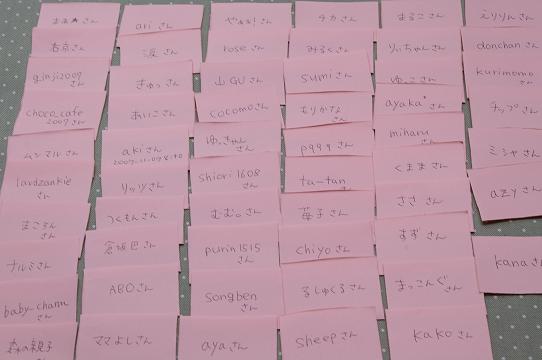 まあ★さん
右京さん
ginji2009さん
choco_cafe
2007さん
ムシマルさん
lardzankieさん
まころん
さん
ナルミさん
baby-charmさん
森の親子
ariさん
渡さん
きゅっさん
あいこさん
akiさん
2009-11-09 8:40
リッツさん
つくもんさん
倉坂巴さん
ABOさん
ママよしさん
roseさん
山GUさん
cocomoさん
ゆっきゃん
さん
shiori1608
さん
むむ。さん
purin1515
さん
songben
さん
ayaさん
チカさん
みるくさん
sumiさん
もりかなさん
pqqqさん
ta-tan
さん
苺子さん
chiyoさん
るしゅくるさん
sheepさん
まるこさん
りぃちゃんさん
ゆっこさん
ayaka*さん
miharuさん
くままさん
ささ さん
すずさん
まっこんぐさん
kakoさん
えりりんさん
donchanさん
kurimomoさん
チップさん
ミシャさん
azyさん
kanaさん